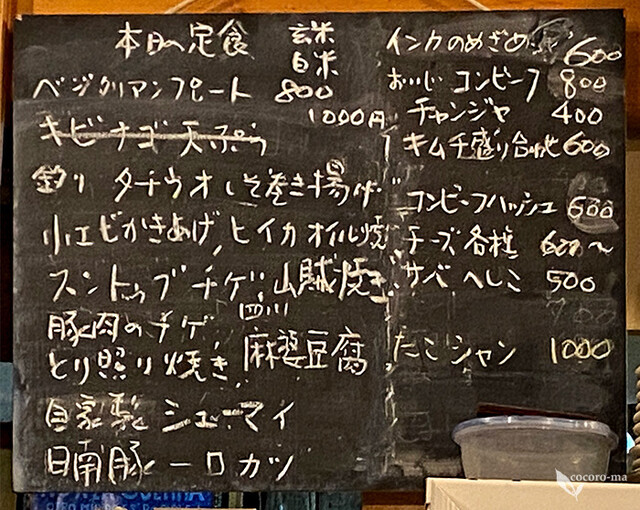 本日の定食 玄米
白米
ベジタリアンプレート 800
1000円
キビナゴ天ぷら
釣り タチウオしそ巻き揚げ
小エビかきあげ、ヒイカオイル焼
スントゥブチゲ 山賊焼き
豚肉のチゲ 四川
とり照り焼き 麻婆豆腐
自家製 シューマイ
日南豚一口カツ
インカのめざめ 600
おいじ コンビーフ 800
チャンジャ 400
キムチ盛り合わせ 600
コンビーフハッシュ 600
チーズ各種 600〜
サバへしこ 500
たこジャン 1000
cocoro-ma